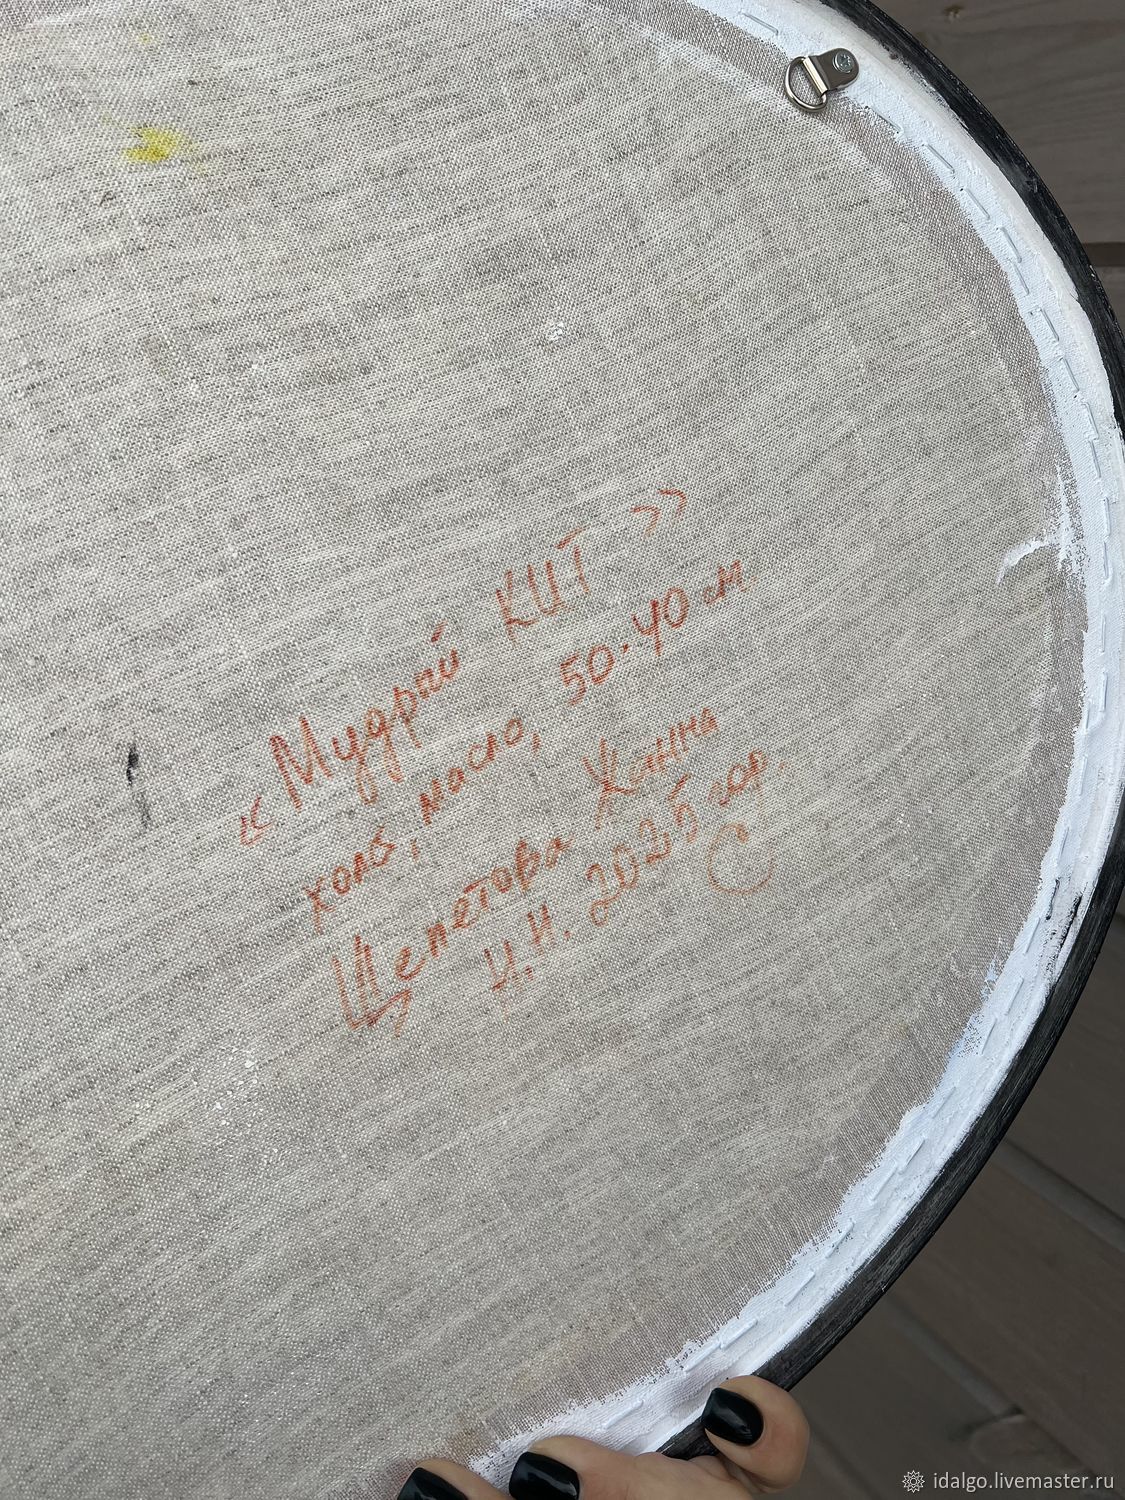 « Мудрый КИТ »
холст, масло, 50·40 см.
Щепетова Жанна
Н.Н. 2025 год.
idalgo.livemaster.ru